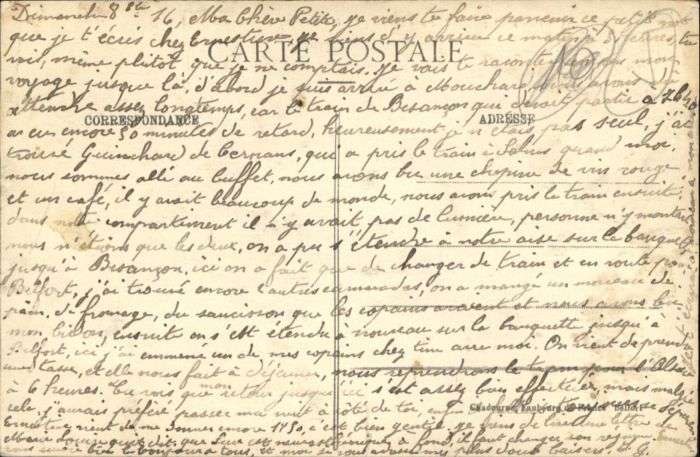 Dimanche 8 16, Ma Chère Petite, je viens te faire parvenir ce petit
que je t'écris chez Ernestine je viens d'y arriver ce matin à heures, tu
vois, même plutôt que je ne comptais. Je vais te raconter mon
CARTE POSTALE
voyage jusque là, d'abord je suis arrivé à Mouchard, nous avons
attendre assez longtemps, car le train de Besançon qui devait partir à 7h
CORRESPONDANCE
ADRESSE
a eu encore 50 minutes de retard, heureusement je n'étais pas seul, j'ai
trouvé Guinchard de Cernans, qui a pris le train à Salins quand moi,
nous sommes allé au buffet, nous avons bu une chopine de vin rouge
et un café, il y avait beaucoup de monde, nous avons pris le train ensuite
dans notre compartiment il n'y avait pas de lumière, personne n'y montait
nous n'étions que les deux, on a pu s'étendre à notre aise sur la banquette
jusqu'à Besançon, ici on a fait que de changer de train et en route pour
Belfort, j'ai trouvé encore d'autres camarades, on a mangé un morceau de
pain, de fromage, du saucisson que les copains avaient et nous avons bu
mon bidon, ensuite on s'est étendu à nouveau sur la banquette jusqu'à
Belfort, ici j'ai emmené un de mes copains chez tine avec moi. On vient de prendre
une tasse, et elle nous fait à déjeuner, nous reprendrons le train pour l'Alsace
à 6 heures. Tu vois que mon retour jusqu'ici s'est assez bien effectué, mais malgré
cela, j'aurais préféré passer ma nuit à côté de toi, enfin
Ernestine vient de me donner encore c'est bien gentil, je viens de lire une lettre de
Marie Louise qui dit que Suzette est neurasthénique à fond, il faut changer son régime
bien le bonjour à tous, et moi je vous adresse mes plus doux baisers,